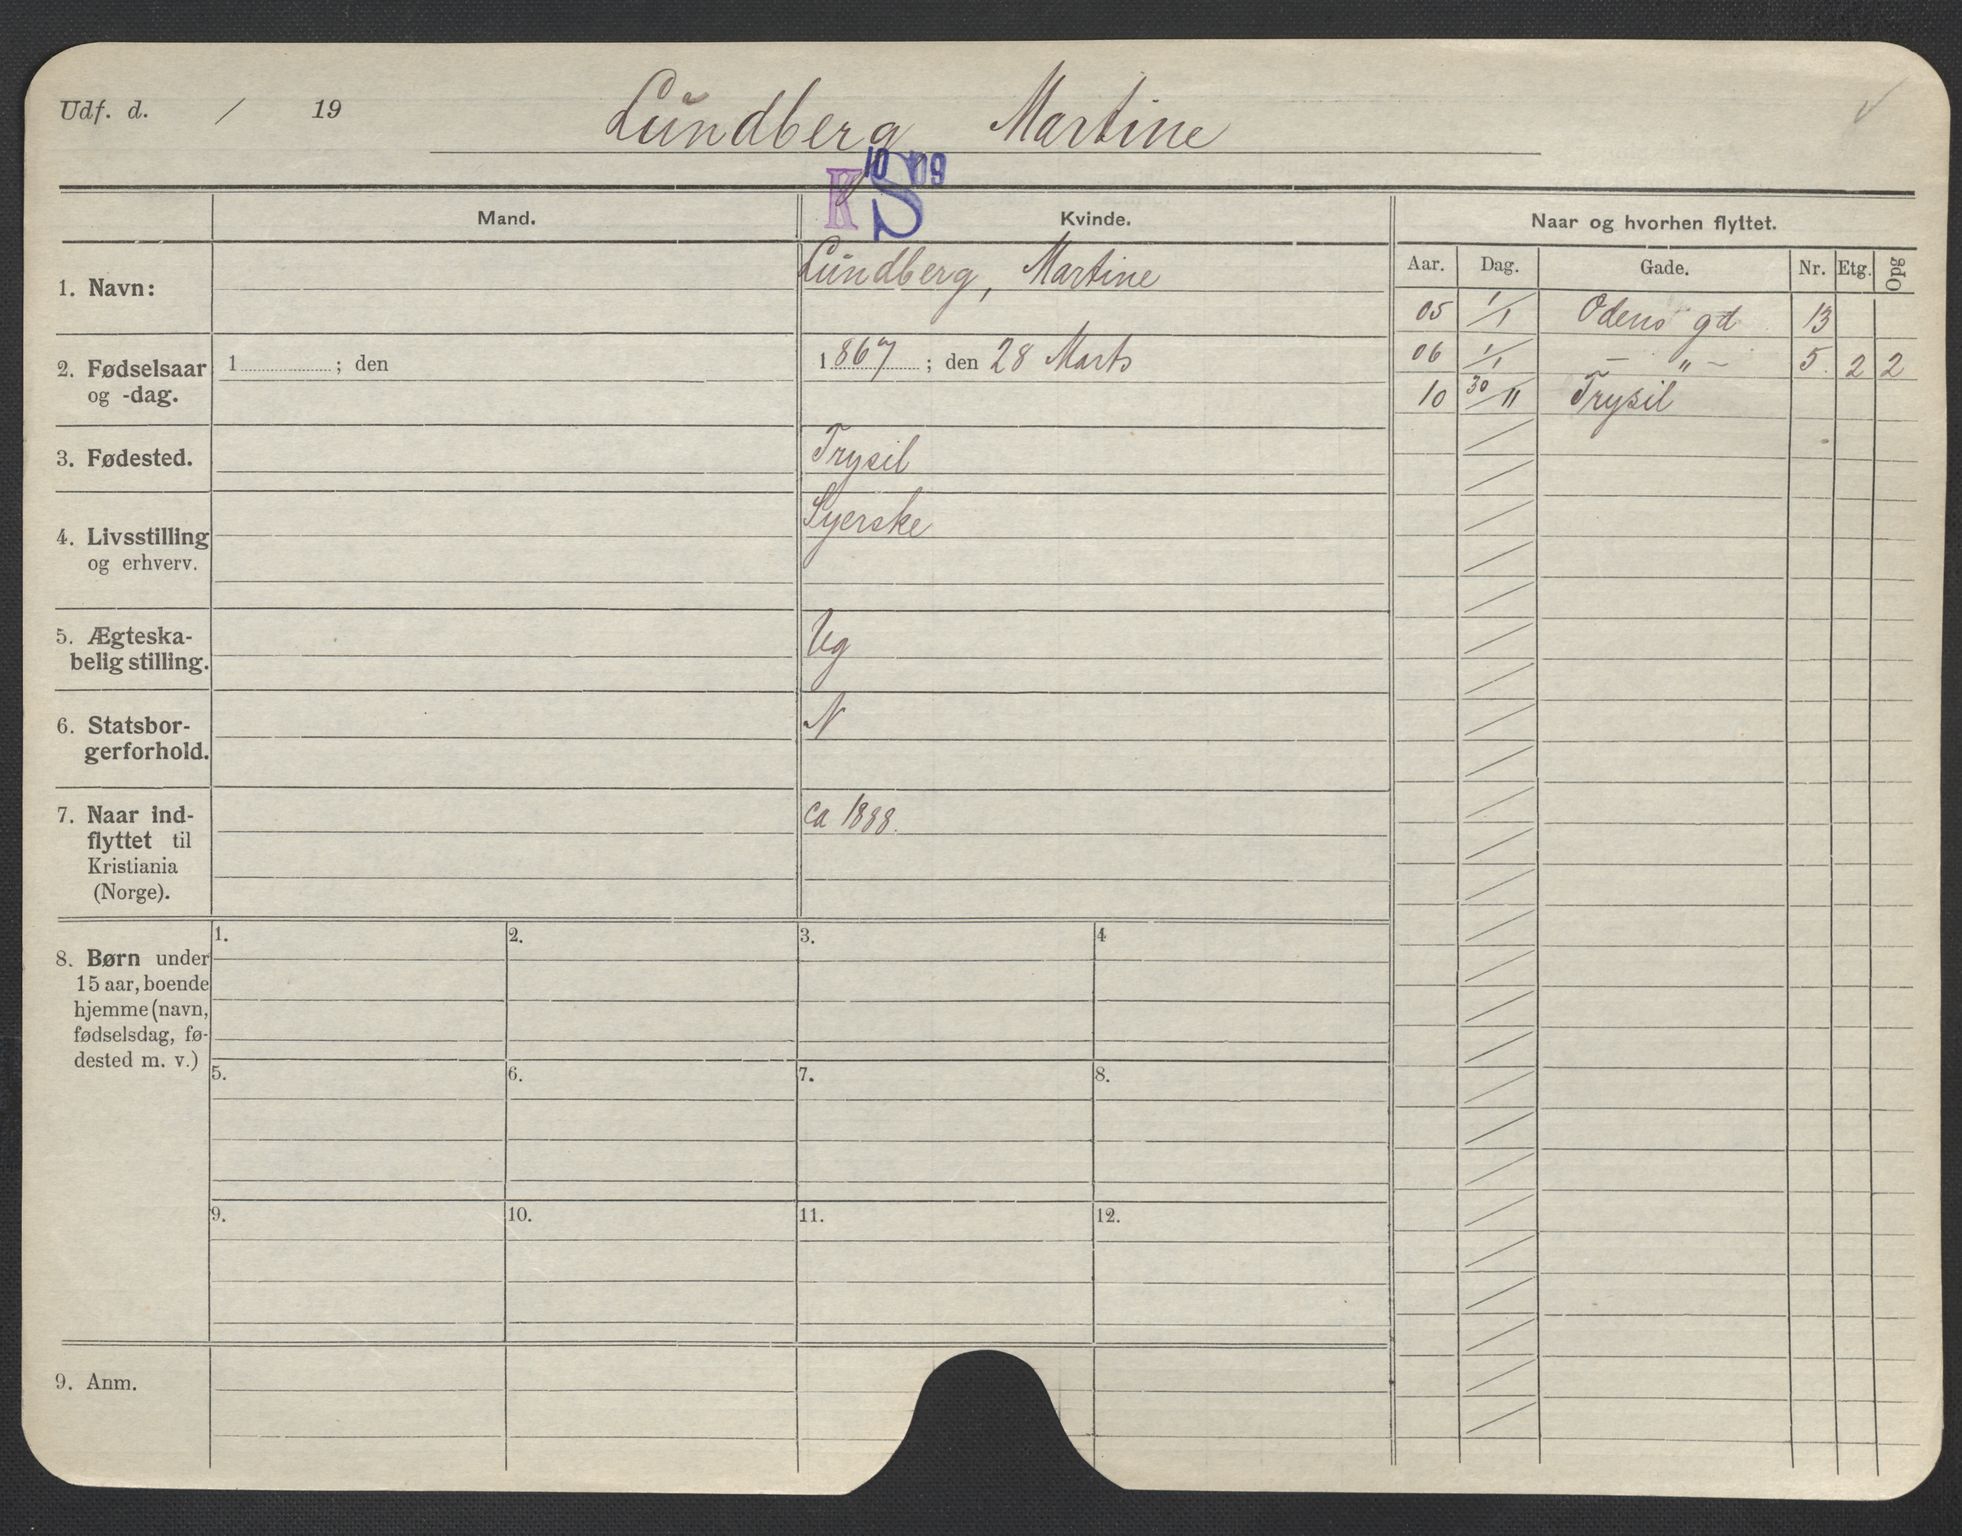 Udf. d. / 19
Lundberg Martine
K S 10 09
Mand.
Kvinde.
Naar og hvorhen flyttet.
Aar. Dag. Gade. Nr. Etg. Opg
1. Navn:
Lundberg, Martine
05 1/1 Odens gd 13
2. Fødselsaar
og -dag.
1 ; den
1867 ; den 28 Marts
06 1/1 — „ — 5. 2 2
10 30/11 Trysil
3. Fødested.
Trysil
4. Livsstilling
og erhverv.
Syerske
5. Ægteska-
belig stilling.
Ug
6. Statsbor-
gerforhold.
N
7. Naar ind-
flyttet til
Kristiania
(Norge).
ca 1888.
8. Børn under
15 aar, boende
hjemme (navn,
fødselsdag, fø-
dested m. v.)
1. 2. 3. 4
5. 6. 7. 8.
9. 10. 11. 12.
9. Anm.